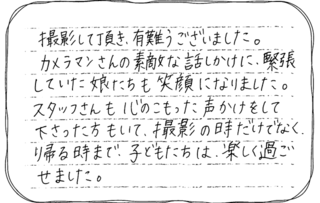 撮影して頂き、有難うございました。
カメラマンさんの素敵な話しかけに、緊張
していた娘たちも笑顔になりました。
スタッフさんも心のこもった声かけをして
下さった方もいて、撮影の時だけでなく、
り帰る時まで、子どもたちは、楽しく過ご
せました。